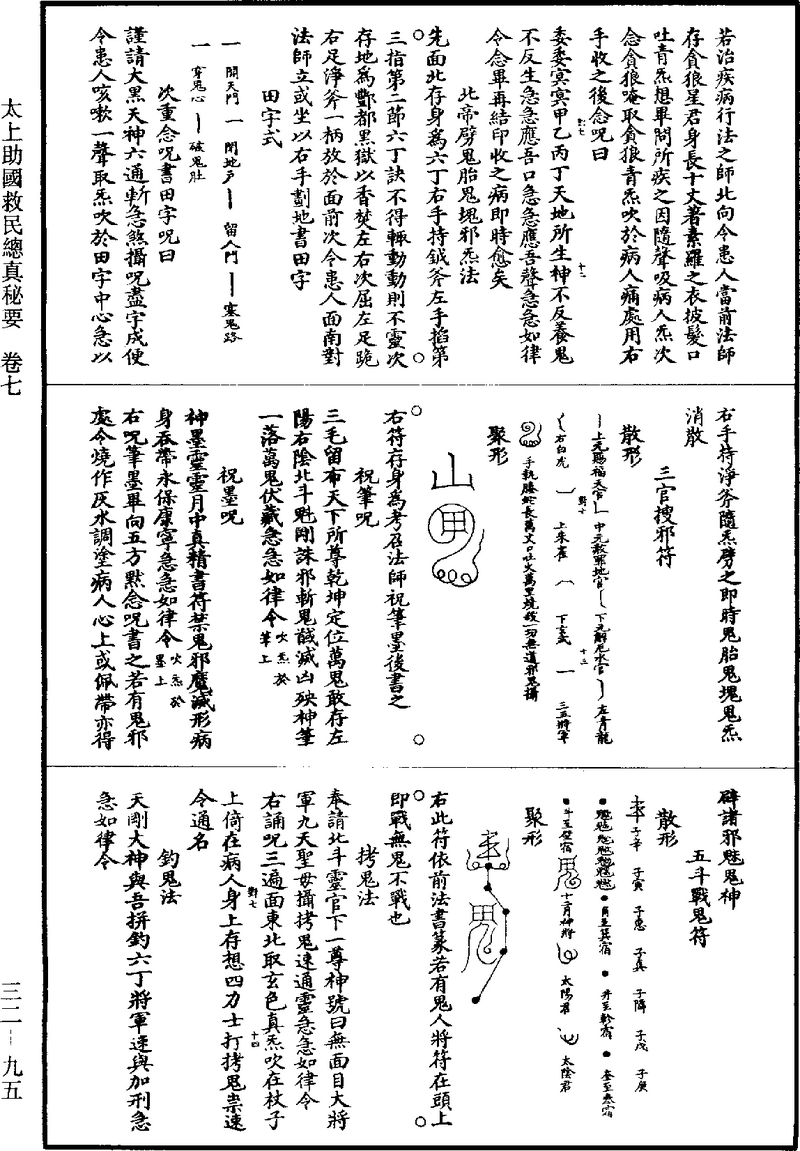 太上助國救民總真秘要　卷七
三二－九五
若治疾病行法之師北向令患人當前法師
存貪狼星君身長十丈著素羅之衣披髮口
吐青炁想畢問所疾之因隨聲吸病人炁次
念貪狼唵取貪狼青炁吹於病人痛處用右
手收之後念呪曰
委委冥冥甲乙丙丁天地所生神不反養鬼
對七
十二
不反生急急應吾口急急應吾聲急急如律
令念畢再結印收之病即時愈矣
北帝劈鬼胎鬼塊邪炁法
先面北存身為六丁右手持鉞斧左手掐第
三指第二節六丁訣不得輙動動則不靈次
存地為酆都黑獄以香焚左右次屈左足跪
右足淨斧一柄放於面前次令患人面南對
法師立或坐以右手劃地書田字
田字式
一　開天門　一　閉地戶　丨　留人門　丨　塞鬼路
一　穿鬼心　丨　破鬼肚
次重念呪書田字呪曰
謹請大黑天神六通斬急煞攝呪盡字成使
令患人咳嗽一聲取炁吹於田字中心急以
右手持淨斧隨炁劈之即時鬼胎鬼塊鬼炁
消散
三官捜邪符
散形
上元賜福天官　中元赦罪地官　下元解厄水官　左青龍
對七
十三
右白虎　上朱雀　下玄武　三五將軍
手執騰蛇長萬丈口吐火萬里燒殺一切無道邪鬼攝
聚形
右符存身為考召法師祝筆墨後書之
祝筆呪
三毛留布天下所尊乾坤定位萬鬼敢存左
陽右陰北斗魁剛誅邪斬鬼馘滅凶殃神筆
一落萬鬼伏藏急急如律令吹炁於筆上
祝墨呪
神墨靈靈月中真精書符禁鬼邪魔滅形病
身吞帶永保康寧急急如律令吹炁於墨上
右呪筆墨畢向五方默念呪書之若有鬼邪
處令燒作灰水調塗病人心上或佩帶亦得
辟諸邪魅鬼神
五斗戰鬼符
散形
子辛　子寅　子惠　子真　子降　子戌　子庚
角至箕宿　井至軫宿　奎至參宿
斗至壁宿　十二月神將　太陽君　太陰君
聚形
右此符依前法書篆若有鬼人將符在頭上
即戰無鬼不戰也
拷鬼法
奉請北斗靈官下一尊神號曰無面目大將
軍九天聖母攝拷鬼速通靈急急如律令
右誦呪三遍面東北取玄色真炁吹在杖子
上倚在病人身上存想四力士打拷鬼祟速
對七
十四
令通名
釣鬼法
天剛大神與吾拼釣六丁將軍速與加刑急
急如律令